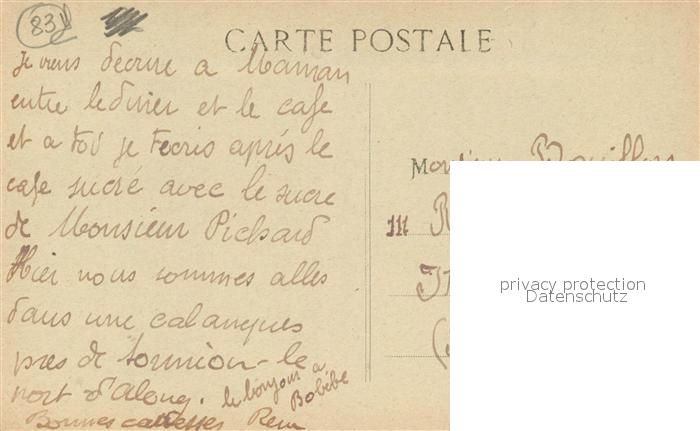 83
CARTE POSTALE
Je viens decrire a Maman
entre le diner et le cafe
et a toi je tecris après le
cafe sucré avec le sucre
de Monsieur Pichard
Hier nous sommes alles
dans une calanques
pres de Sormiou - le
port d'Along.
le bonjour a
Bobébé
Bonnes caresses
111
privacy protection
Datenschutz